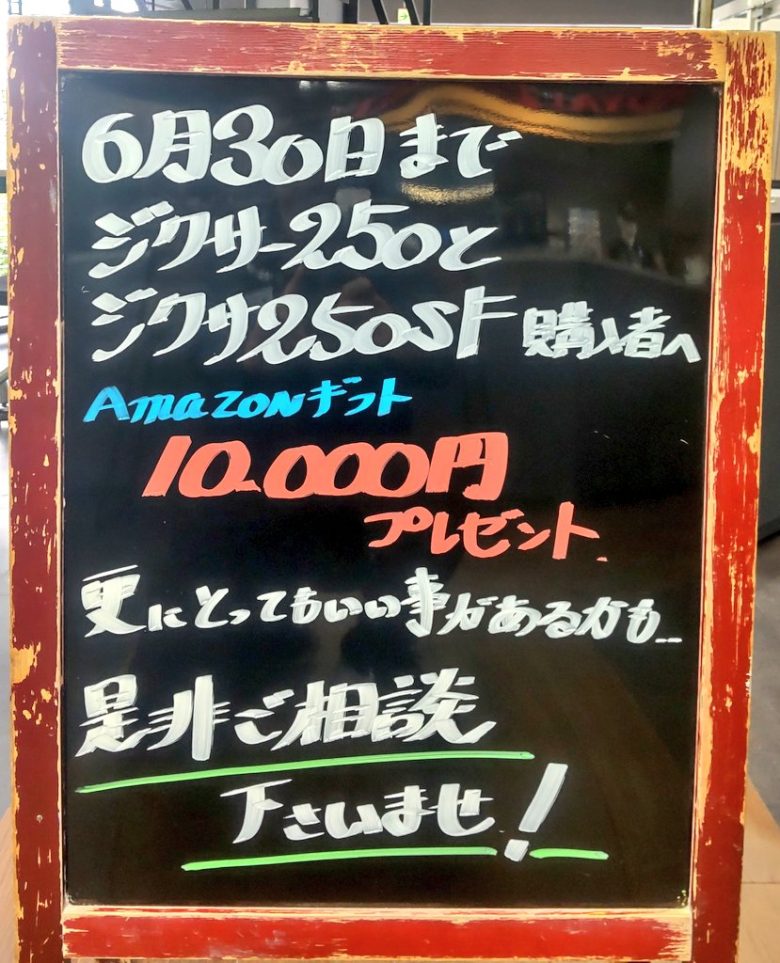 6月30日まで
ジクサー250と
ジクサ250SF 購入者へ
Amazonギフト
10.000円
プレゼント
更にとってもいい事があるかも...
是非ご相談
下さいませ!